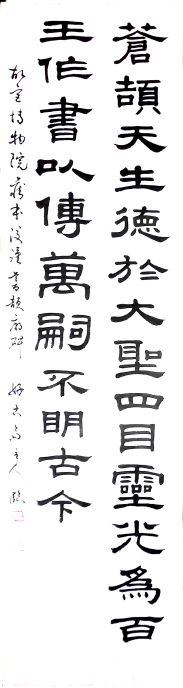 蒼頡天生德於大聖四目靈光為百
王作書以傳萬嗣不明古今
故宮博物院藏本漢蒼頡廟碑 好古齋主人臨